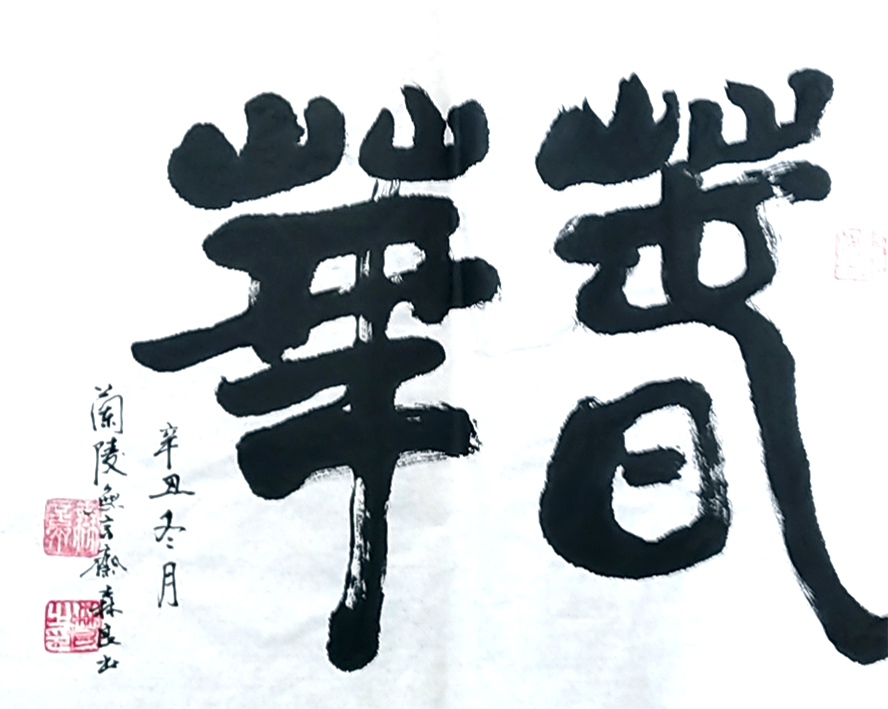 春華
辛丑冬月
蘭陵無言齋森良书